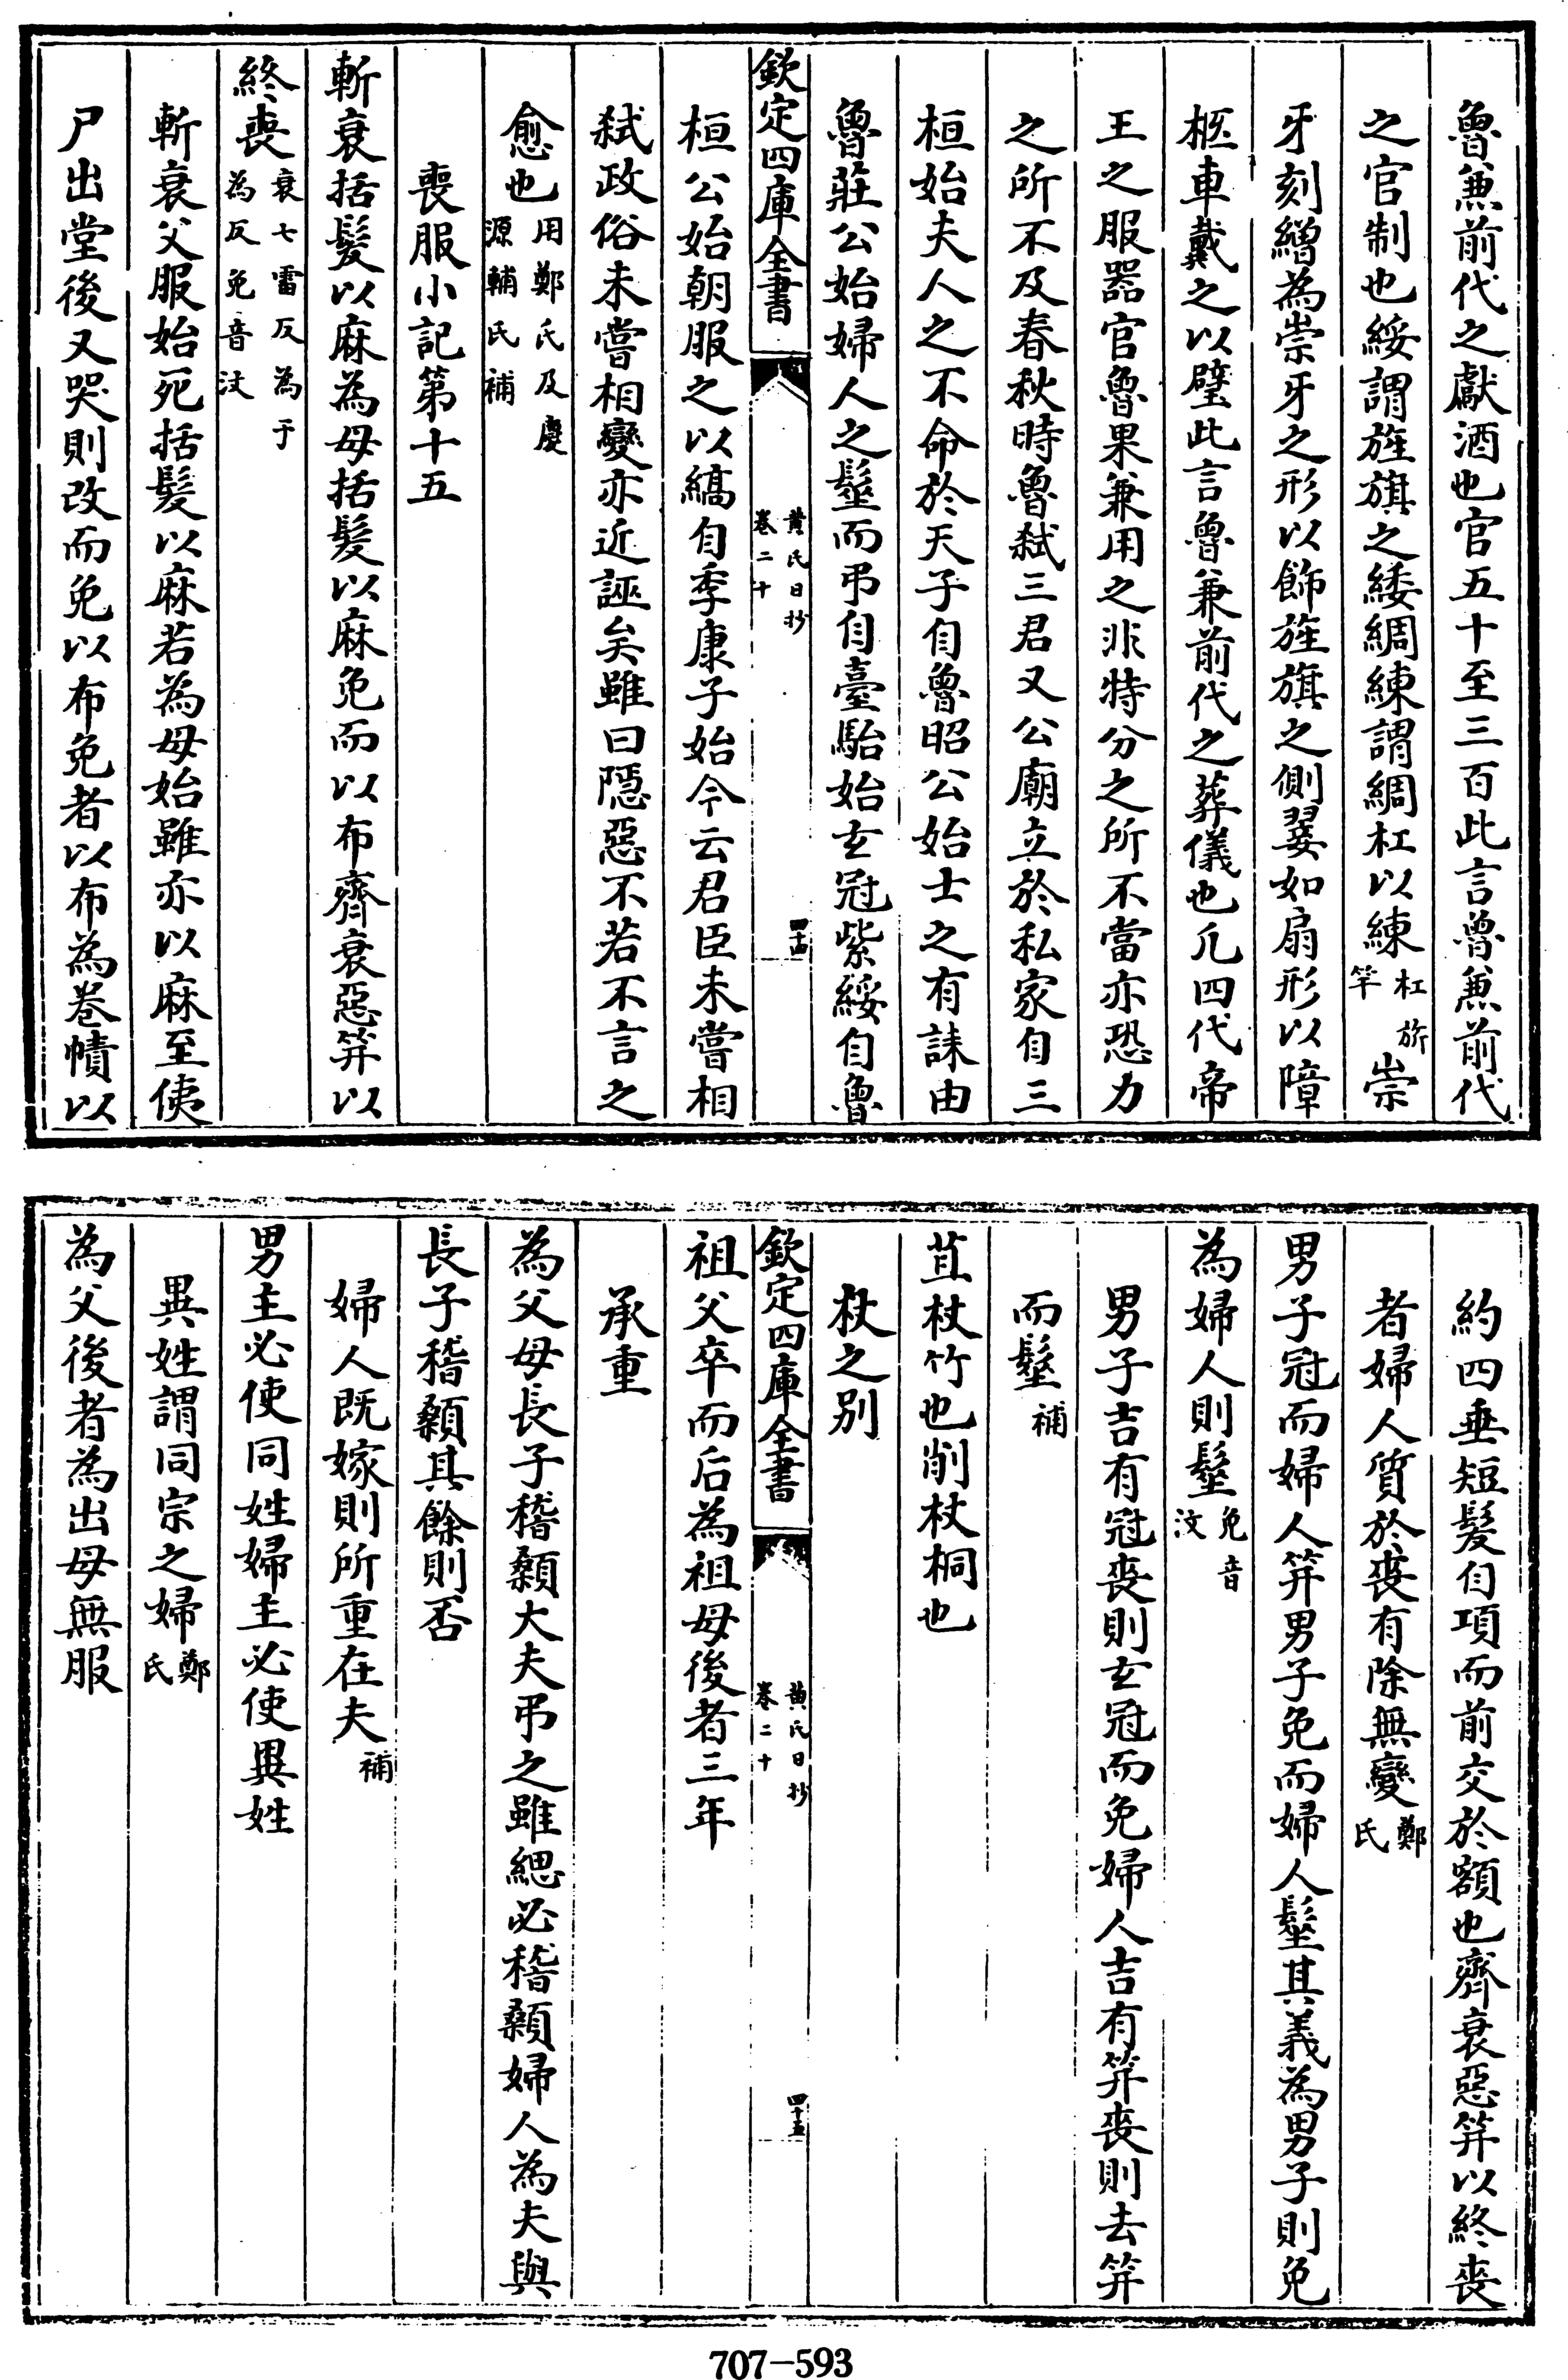 魯兼前代之獻酒也官五十至三百此言魯兼前代
之官制也綏謂旌旗之緌綢練謂綢杠以練杠旂竿崇
牙刻繒為崇牙之形以飾旌旗之側翣如扇形以障
柩車戴之以璧此言魯兼前代之葬儀也凡四代帝
王之服器官魯果兼用之非特分之所不當亦恐力
之所不及春秋時魯弑三君又公廟立於私家自三
桓始夫人之不命於天子自魯昭公始士之有誄由
魯莊公始婦人之髽而弔自臺駘始玄冠紫緌自魯
欽定四庫全書
黃氏日抄
卷二十
四十四
桓公始朝服之以縞自季康子始今云君臣未嘗相
弑政俗未嘗相變亦近誣矣雖曰隱惡不若不言之
愈也用鄭氏及慶源輔氏補
喪服小記第十五
斬衰括髮以麻為母括髮以麻免而以布齊衰惡笄以
終喪衰七雷反為于為反免音汶
斬衰父服始死括髮以麻若為母始雖亦以麻至使
尸出堂後又哭則改而免以布免者以布為卷幘以
約四垂短髮自項而前交於額也齊衰惡笄以終喪
者婦人質於喪有除無變鄭氏
男子冠而婦人笄男子免而婦人髽其義為男子則免
為婦人則髽免音汶
男子吉有冠喪則玄冠而免婦人吉有笄喪則去笄
而髽補
苴杖竹也削杖桐也
杖之別
欽定四庫全書
黃氏日抄
卷二十
四十五
祖父卒而后為祖母後者三年
承重
為父母長子稽顙大夫弔之雖緦必稽顙婦人為夫與
長子稽顙其餘則否
婦人既嫁則所重在夫補
男主必使同姓婦主必使異姓
異姓謂同宗之婦鄭氏
為父後者為出母無服
707-593